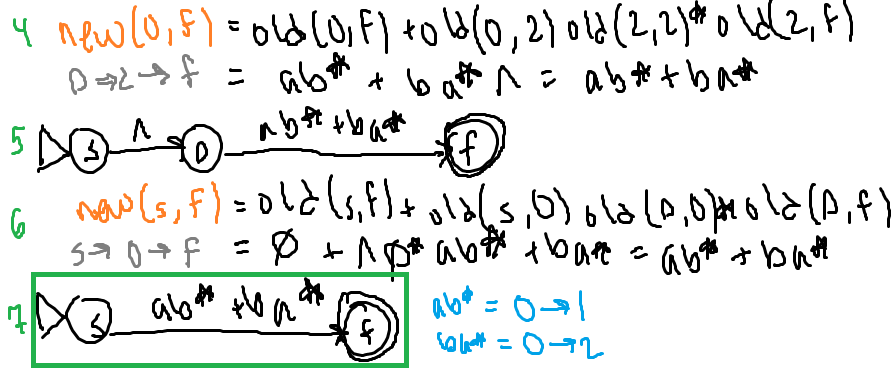 4 new(0,f) = old(0,f) + old(0,2) old(2,2)* old(2,f)
0→2→f = ab* + ba* Λ = ab* + ba*
5 s Λ 0 ab* + ba* f
6 new(s,f) = old(s,f) + old(s,0) old(0,0)* old(0,f)
s→0→f = ∅ + Λ ∅* ab* + ba* = ab* + ba*
7 s ab* + ba* f
ab* = 0→1
ba* = 0→2